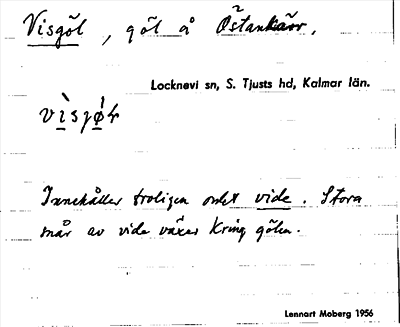 Visgöl, göl å Östankärr,
Locknevi sn, S. Tjusts hd, Kalmar län.
vìsjø̀l
Innehåller troligen ordet vide. Stora
snår av vide växer kring gölen.
Lennart Moberg 1956